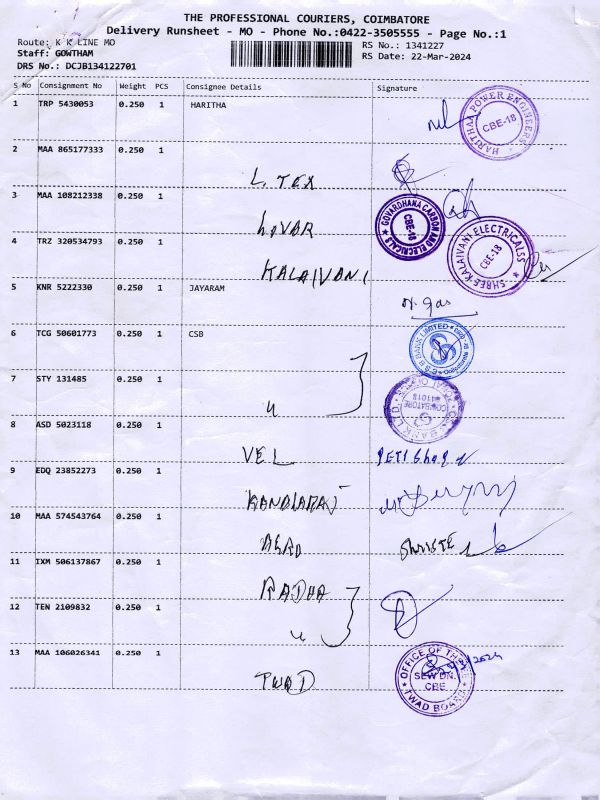 THE PROFESSIONAL COURIERS, COIMBATORE
Delivery Runsheet - MO - Phone No.:0422-3505555 - Page No.:1
Route: K K LINE MO
RS No.: 1341227
Staff: GOWTHAM
RS Date: 22-Mar-2024
DRS No.: DCJB134122701
S No Consignment No Weight PCS Consignee Details Signature
1 TRP 5430053 0.250 1 HARITHA
HARITHAA POWER ENGINEERS CBE-18
2 MAA 865177333 0.250 1 L. TEX
3 MAA 108212338 0.250 1 GOVAR
GOVARDHANA CARBON AND ELECTRICALS CBE-18
4 TRZ 320534793 0.250 1 KALAIVANI
SHREE KALAIVANI ELECTRICALSS CBE-18
5 KNR 5222330 0.250 1 JAYARAM
6 TCG 50601773 0.250 1 CSB
CSB BANK LIMITED
7 STY 131485 0.250 1 "
BANK LTD. COIMBATORE
8 ASD 5023118 0.250 1 VEL
9 EDQ 23852273 0.250 1
10 MAA 574543764 0.250 1
11 IXM 506137867 0.250 1 RADHA
12 TEN 2109832 0.250 1 "
13 MAA 106026341 0.250 1 TWAD
OFFICE OF THE SEW DN. CBE TWAD BOARD